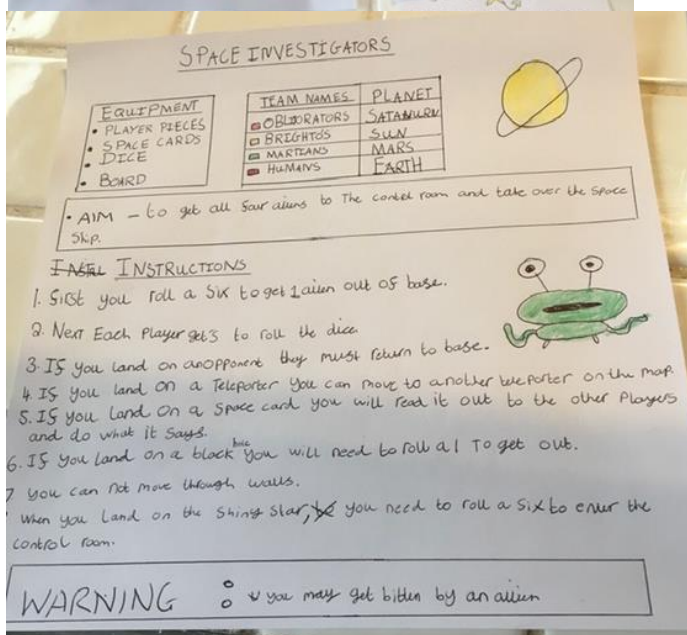 SPACE INVESTIGATORS
EQUIPMENT
• PLAYER PIECES
• SPACE CARDS
• DICE
• BOARD
TEAM NAMES PLANET
OBLIORATORS SATANURN
BRIGHTOS SUN
MARTIANS MARS
HUMANS EARTH
• AIM – to get all four aliens to The control room and take over the Space
Ship.
INSTRUCTIONS
1. First you roll a Six to get 1 alien out of base.
2. Next Each Player gets to roll the dice
3. IF you land on an opponent they must return to base.
4. IF you land on a Teleporter you can move to another teleporter on the map.
5. IF you Land On a Space card you will read it out to the other Players
and do what it Says.
6. IF you Land on a black hole you will need to roll a 1 To get out.
7 you can not move through walls.
When you Land on the Shiny Star, you need to roll a Six to enter the
control room.
WARNING : you may get bitten by an alien